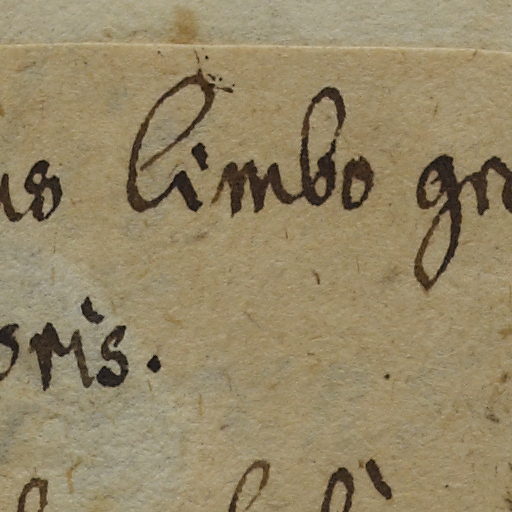 us limbo gr
oris.